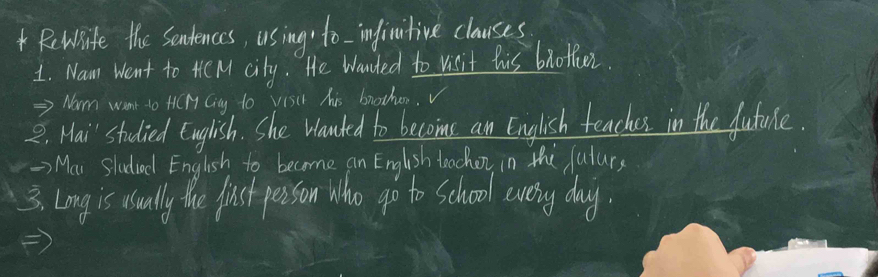 * Rewrite the sentences, using to-infinitive clauses.
1. Nam went to HCM city. He wanted to visit his brother.
⇒ Nam went to HCM City to visit his brother. ✓
2. Mai studied English. She wanted to become an English teacher in the future.
→ Mai studied English to become an English teacher in the future
3. Long is usually the first person who go to school every day.
⇒